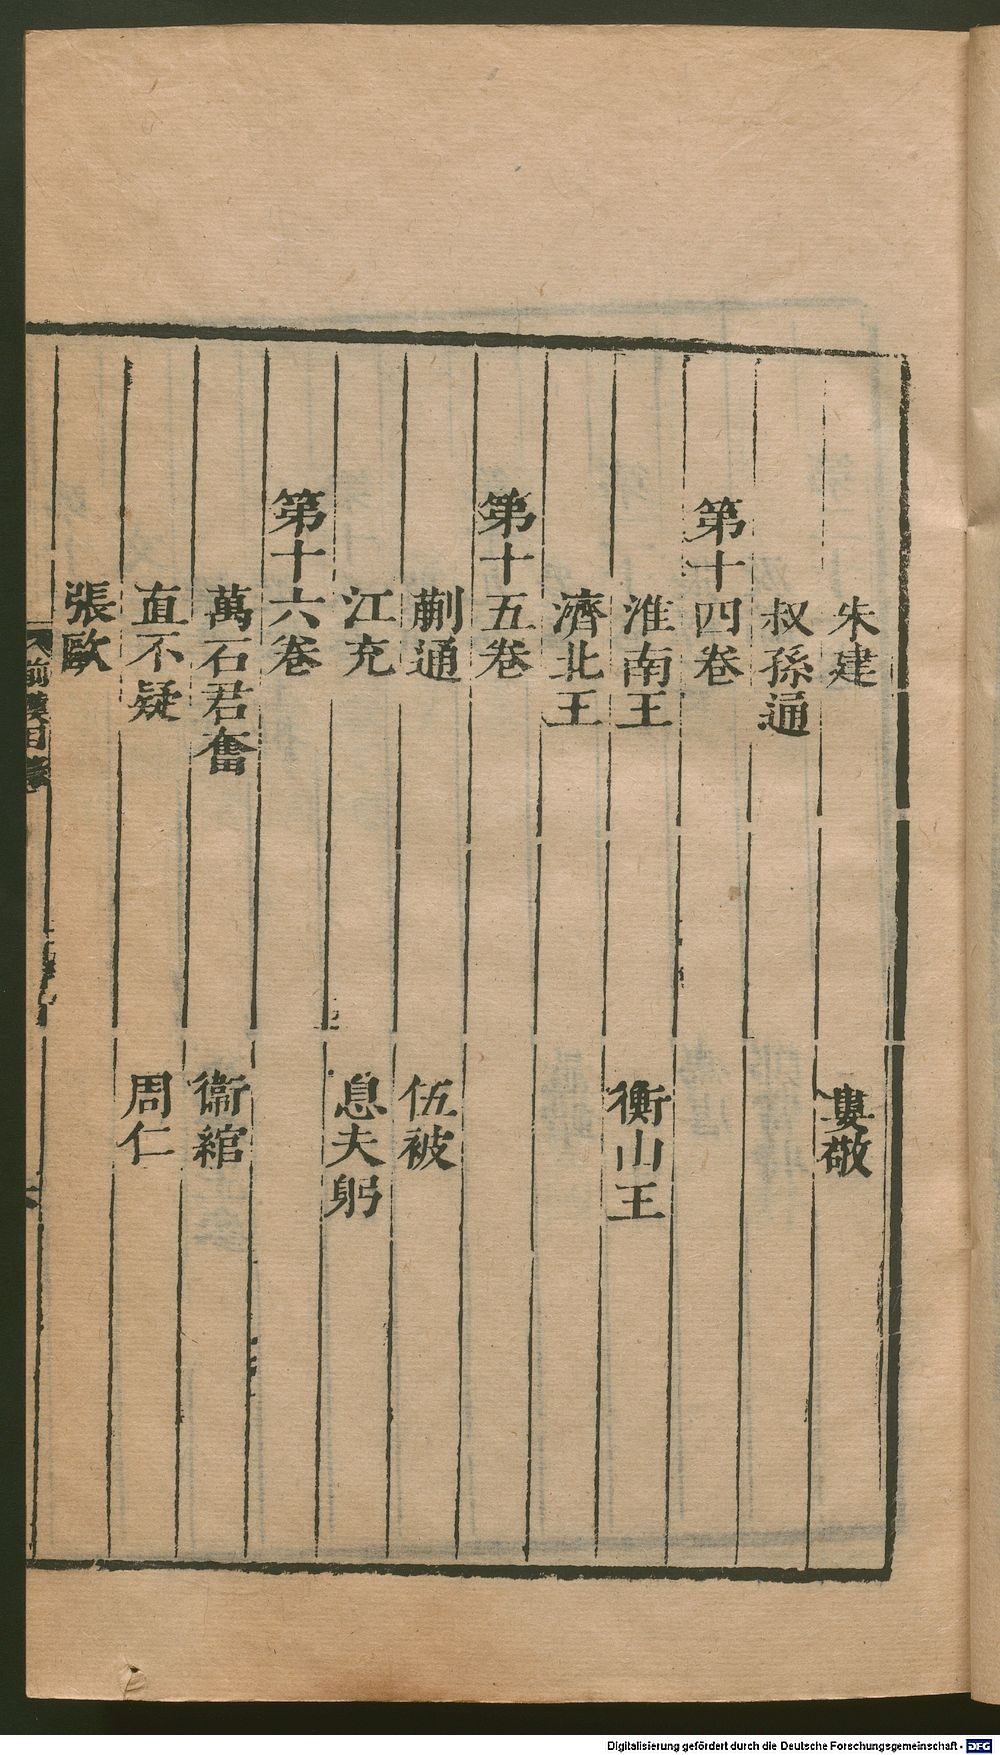 朱建　婁敬
叔孫通
第十四卷
淮南王　衡山王
濟北王
第十五卷
蒯通　伍被
江充　息夫躬
第十六卷
萬石君奮　衞綰
直不疑　周仁
張歐
前漢目錄
六
Digitalisierung gefördert durch die Deutsche Forschungsgemeinschaft - DFG